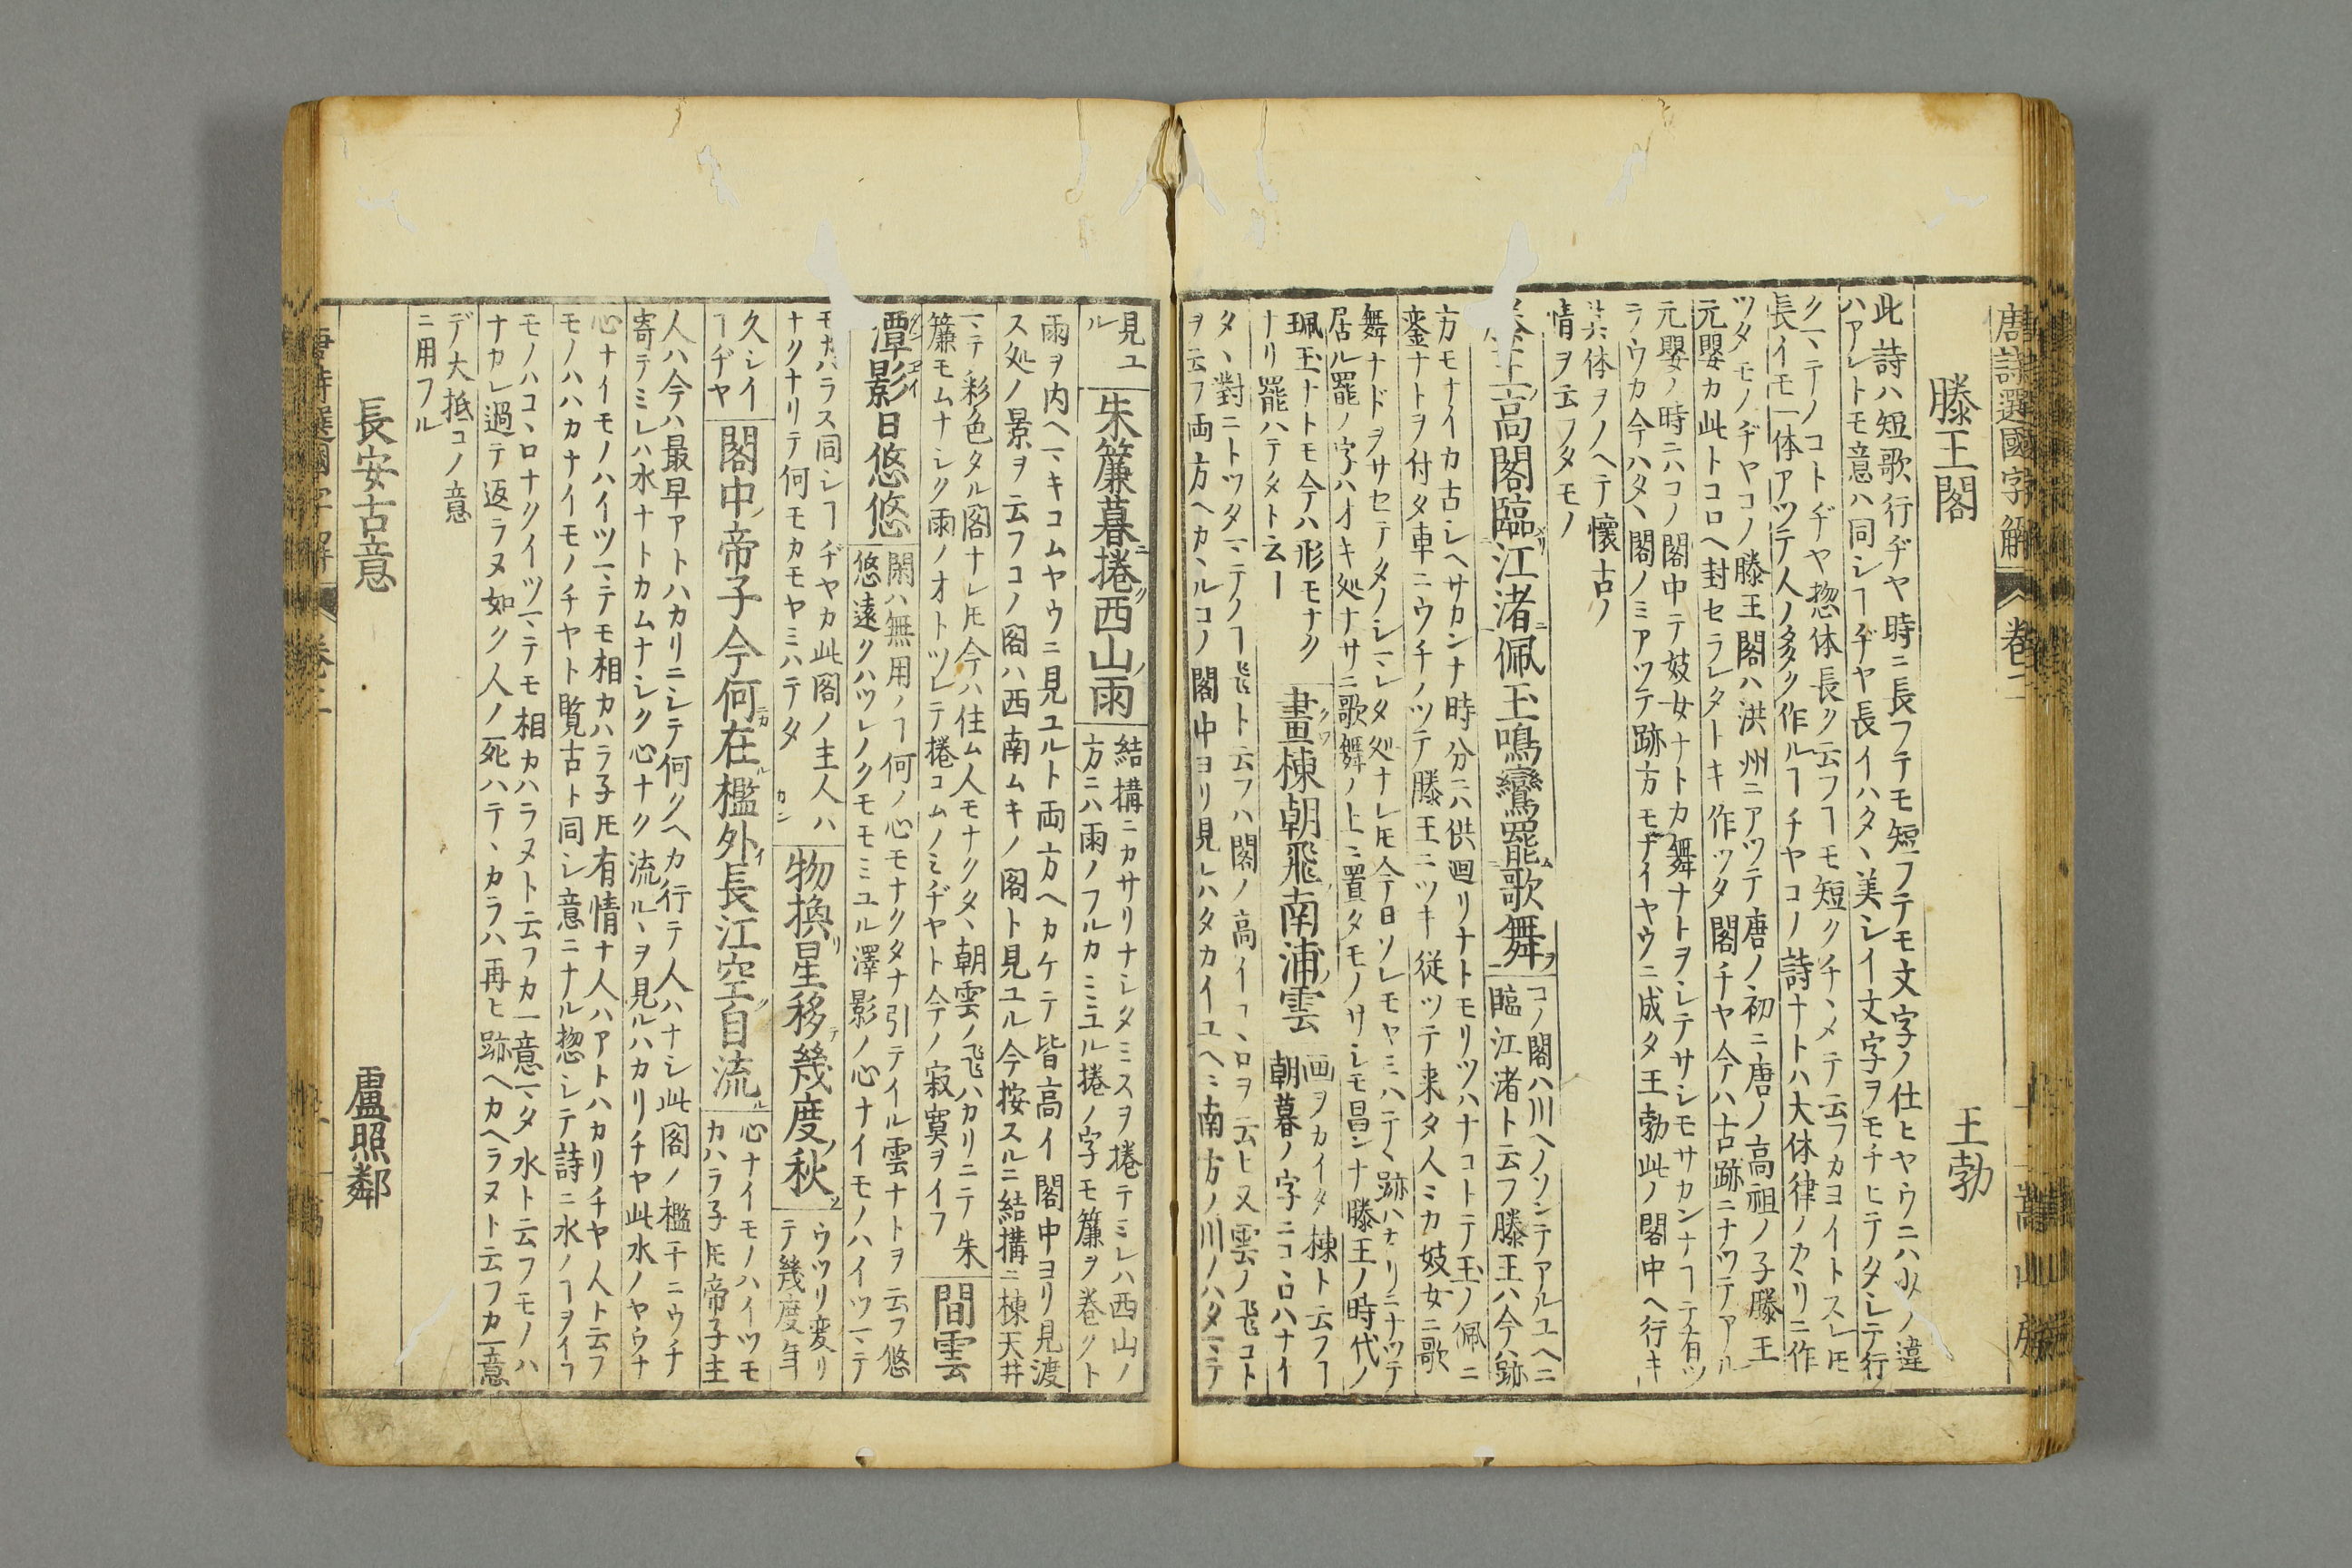 唐詩選國字解 卷二
滕王閣
王勃
此詩ハ短歌行ヂヤ時ニ長フテモ短フテモ文字ノ仕ヒヤウニハ少ノ違
ハアレトモ意ハ同シヿヂヤ長イハタヽ美シイ文字ヲモチヒテタレテ行
クヽテノコトヂヤ惣体長ク云フヿモ短クチヽメテ云フカヨイトスレ𪜈
長イモ一体アツテ人ノ多ク作ルヿチヤコノ詩ナトハ大体律ノカヽリニ作
ツタモノヂヤコノ滕王閣ハ洪州ニアツテ唐ノ初ニ唐ノ高祖ノ子滕王
元嬰カ此トコロヘ封セラレタトキ作ツタ閣チヤ今ハ古跡ニナツテアル
元嬰ノ時ニハコノ閣中テ妓女ナトカ舞ナトヲシテサシモサカンナヿテ有ツ
ラウカ今ハタヽ閣ノミアツテ跡方モナイヤウニ成タ王勃此ノ閣中ヘ行キ
其体ヲノヘテ懷古ノ
情ヲ云フタモノ
王高閣臨江渚佩玉鳴鸞罷歌舞
コノ閣ハ川ヘノソンテアルユヘニ
臨江渚ト云フ滕王ハ今ハ跡
方モナイカ古シヘサカンナ時分ニハ供廻リナトモリツハナコトテ玉ノ佩ニ
鑾ナトヲ付タ車ニウチノツテ滕王ニツキ従ツテ来タ人ミカ妓女ニ歌
舞ナドヲサセテタノシヽレタ処ナレ𪜈今日ソレモヤミハテヽ跡ハナリニナツテ
居ル罷ノ字ハオキ処ナサニ歌舞ノ上ニ置タモノサシモ昌ンナ滕王ノ時代ノ
珮玉ナトモ今ハ形モナク
ナリ罷ハテタト云ー
畫棟朝飛南浦雲
画ヲカイタ棟ト云フヿ
朝暮ノ字ニコヽロハナイ
タヽ對ニトツタヽテノヿ飛ト云フハ閣ノ高イコヽロヲ云ヒ又雲ノ飛コト
ヲ云フ両方ヘカヽルコノ閣中ヨリ見レハタカイユヘニ南方ノ川ノハタヽテ
見ユ
ル
朱簾暮捲西山雨
結構ニカサリナシタミスヲ捲テミレハ西山ノ
方ニハ雨ノフルカミユル捲ノ字モ簾ヲ卷クト
雨ヲ内ヘヽキコムヤウニ見ユルト両方ヘカケテ皆高イ閣中ヨリ見渡
ス処ノ景ヲ云フコノ閣ハ西南ムキノ閣ト見ユル今按スルニ結構ニ棟天井
ヽテ彩色タル閣ナレ𪜈今ハ住ム人モナクタヽ朝雲ノ飛ハカリニテ朱
簾モムナシク雨ノオトツレテ捲コムノミヂヤト今ノ寂寞ヲイフ
間雲
潭影日悠悠
閑ハ無用ノヿ何ノ心モナクタナ引テイル雲ナトヲ云フ悠
悠遠クハツレノクモモミユル澤影ノ心ナイモノハイツヽテ
モカハラス同シヿヂヤカ此閣ノ主人ハ
ナクナリテ何モカモヤミハテタ
物換星移幾度秋
ウツリ変リ
テ幾度年
久シイ
ヿヂヤ
閣中帝子今何在檻外長江空自流
心ナイモノハイツモ
カハラ子𪜈帝子主
人ハ今ハ最早アトハカリニシテ何クヘカ行テ人ハナシ此閣ノ檻干ニウチ
寄テミレハ水ナトカムナシク心ナク流ルヽヲ見ルハカリチヤ此水ノヤウナ
心ナイモノハイツヽテモ相カハラ子𪜈有情ナ人ハアトハカリチヤ人ト云フ
モノハハカナイモノチヤト覧古ト同シ意ニナル惣シテ詩ニ水ノヿヲイフ
モノハコヽロナクイツヽテモ相カハラヌト云フカ一意ヽタ水ト云フモノハ
ナカレ過テ返ラヌ如ク人ノ死ハテヽカラハ再ヒ跡ヘカヘラヌト云フカ一意
デ大抵コノ意
ニ用フル
長安古意
盧照鄰